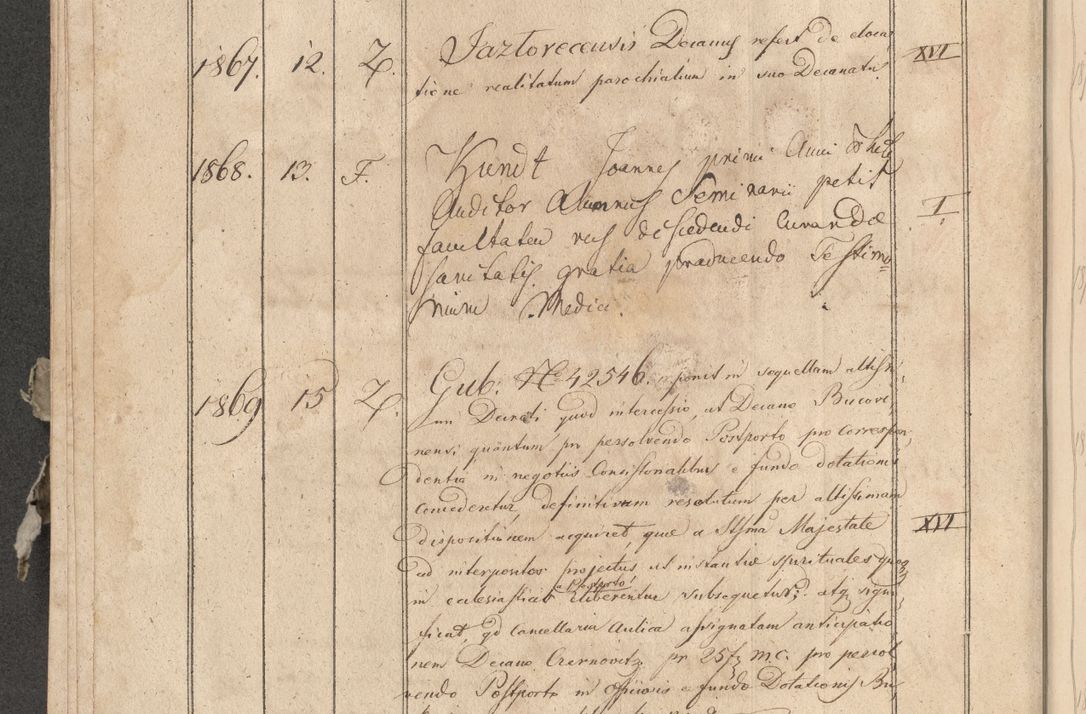 1867. 12. Z. Jazlorecensis Decanus refert de eloca
tione realitatum parochialium in suo Decanatu. XVI
1868. 13. F. Kundt Joannes primi Anni
Auditor Alumnus Seminarii petit
facultatem rus descedendi curandae I
sanitatis gratia producendo Testimo
nium Medici.
1869 15 Z. Gub. No 42546. ponit in sequellam altissi
mi Decreti quod intercessio, ut Decano Bucovi
nensi quantum pro persolvendo Postporto pro correspon
dentia in negotiis Consistorialibus e fundo dotationis
concederetur, definitivam resolutum per altissimam
dispositionem acquiret, quae a Majestate XVI
ad interpositos projectus ut instantiae spirituales quoq
in ecclesiasticis a Postporto liberentur subsequetur; atq signi
ficat, qd Cancellaria Aulica assignatam anticipatio
nem Decano Czernovitz. pr 25 f mc. pro persol
vendo Postporto in officiosis e fundo Dotationis Bu